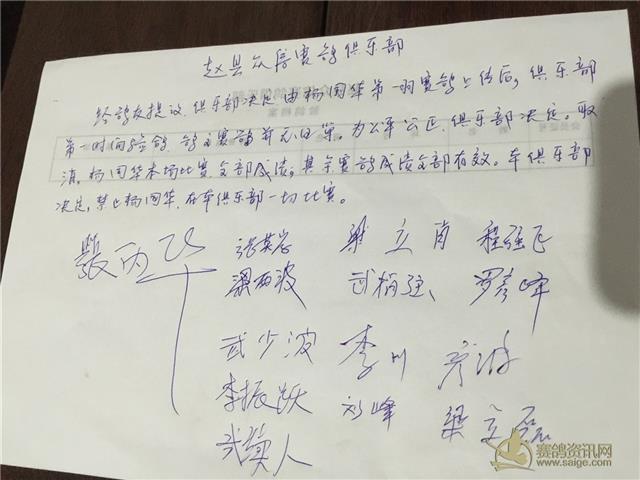 赵县众信赛鸽俱乐部
经鸽友提议,俱乐部决定由杨国华第一羽赛鸽上传后,俱乐部
第一时间验鸽,鸽主赛鸽并无归巢。为公平公正,俱乐部决定。取
消,杨国华本场比赛全部成绩。其余赛鸽成绩全部有效。本俱乐部
决定,禁止杨国华,在本俱乐部一切比赛。
张英岩 梁立肖 程强飞
梁西波 武梢强、罗彦峰
武少波 李川 彦游
李振跃 刘峰 梁立磊
武英人
赛鸽资讯网
www.saige.com